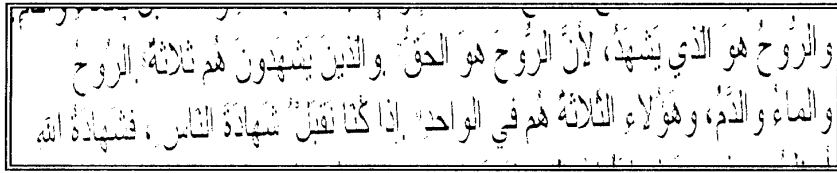 والرُّوحُ هوَ الذي يَشهَدُ، لأنَّ الرُّوحَ هوَ الحَقُّ. والذينَ يَشهَدونَ هُم ثلاثةٌ: الرُّوحُ
والماءُ والدَّمُ، وهَؤُلاءِ الثلاثةُ هُم في الواحدِ. إذا كُنَّا نَقبَلُ شَهادَةَ الناسِ، فشَهادَةُ الله